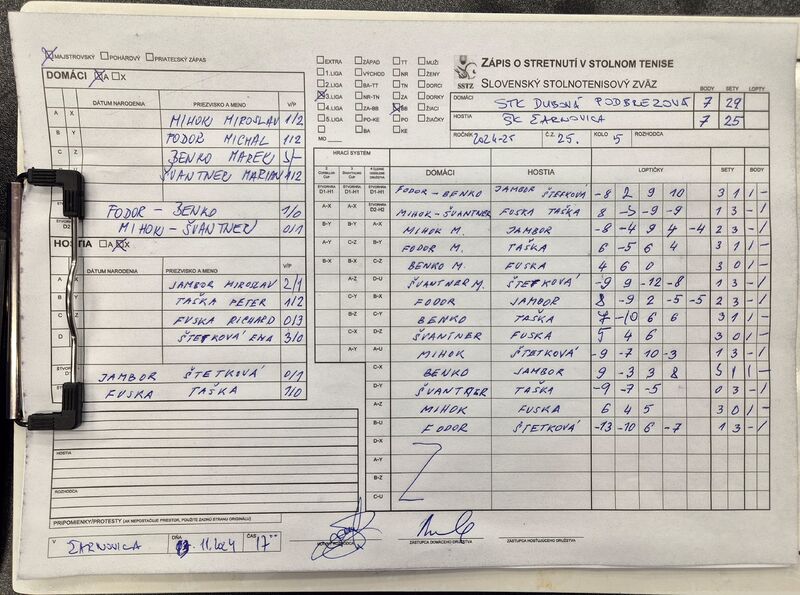 MAJSTROVSKÝ POHÁROVÝ PRIATEĽSKÝ ZÁPAS
DOMÁCI A X
DÁTUM NARODENIA PRIEZVISKO A MENO V/P
A X MIHOK MIROSLAV 1/2
B Y FODOR MICHAL 1/2
C Z BENKO MAREK 3/-
ŠVANTNER MARIAN 1/2
FODOR - BENKO 1/0
D2 MIHOK - ŠVANTNER 0/1
HOSTIA A X
DÁTUM NARODENIA PRIEZVISKO A MENO V/P
A X JAMBOR MIROSLAV 2/1
B Y TAŠKA PETER 1/2
C Z FUSKA RICHARD 0/3
D ŠTETKOVÁ EMA 3/0
JAMBOR ŠTETKOVÁ 0/1
FUSKA TAŠKA 1/0
HOSTIA
ROZHODCA
PRIPOMIENKY/PROTESTY (AK NEPOSTAČUJE PRIESTOR, POUŽITE ZADNÚ STRANU ORIGINÁLU)
V ŽARNOVICA DŇA 11.2024 ČAS 17⁰⁰
EXTRA ZÁPAD TT MUŽI
1.LIGA VÝCHOD NR ŽENY
2.LIGA BA-TT TN DORCI
3.LIGA NR-TN ZA DORKY
4.LIGA ZA-BB BB ŽIACI
5.LIGA PO-KE PO ŽIAČKY
BA KE
MO
SSTZ
ZÁPIS O STRETNUTÍ V STOLNOM TENISE
SLOVENSKÝ STOLNOTENISOVÝ ZVÄZ
BODY SETY LOPTY
DOMÁCI STK DUBOVÁ PODBREZOVÁ 7 29
HOSTIA ŠK ŽARNOVICA 7 25
ROČNÍK 2024-25 Č.Z. 25. KOLO 5 ROZHODCA
HRACÍ SYSTÉM
DOMÁCI HOSTIA LOPTIČKY SETY BODY
FODOR - BENKO JAMBOR ŠTETKOVÁ -8 2 9 10 3 1 1 -
MIHOK - ŠVANTNER FUSKA TAŠKA 8 -9 -9 1 3 - 1
MIHOK M. JAMBOR -8 -4 9 4 -4 2 3 - 1
FODOR M. TAŠKA 6 -5 6 4 3 1 1 -
BENKO M. FUSKA 4 6 0 3 0 1 -
ŠVANTNER M. ŠTETKOVÁ -9 9 -12 -8 1 3 - 1
FODOR JAMBOR 8 -9 2 -5 -5 2 3 - 1
BENKO TAŠKA 7 -10 6 6 3 1 1 -
ŠVANTNER FUSKA 5 4 6 3 0 1 -
MIHOK ŠTETKOVÁ -9 -7 10 -3 1 3 - 1
BENKO JAMBOR 9 -3 3 8 3 1 1 -
ŠVANTNER TAŠKA -9 -7 -5 0 3 - 1
MIHOK FUSKA 6 4 5 3 0 1 -
FODOR ŠTETKOVÁ -13 -10 6 -7 1 3 - 1
D-X
A-Y
B-Z
C-U
ZÁSTUPCA DOMÁCEHO DRUŽSTVA ZÁSTUPCA HOSŤUJÚCEHO DRUŽSTVA